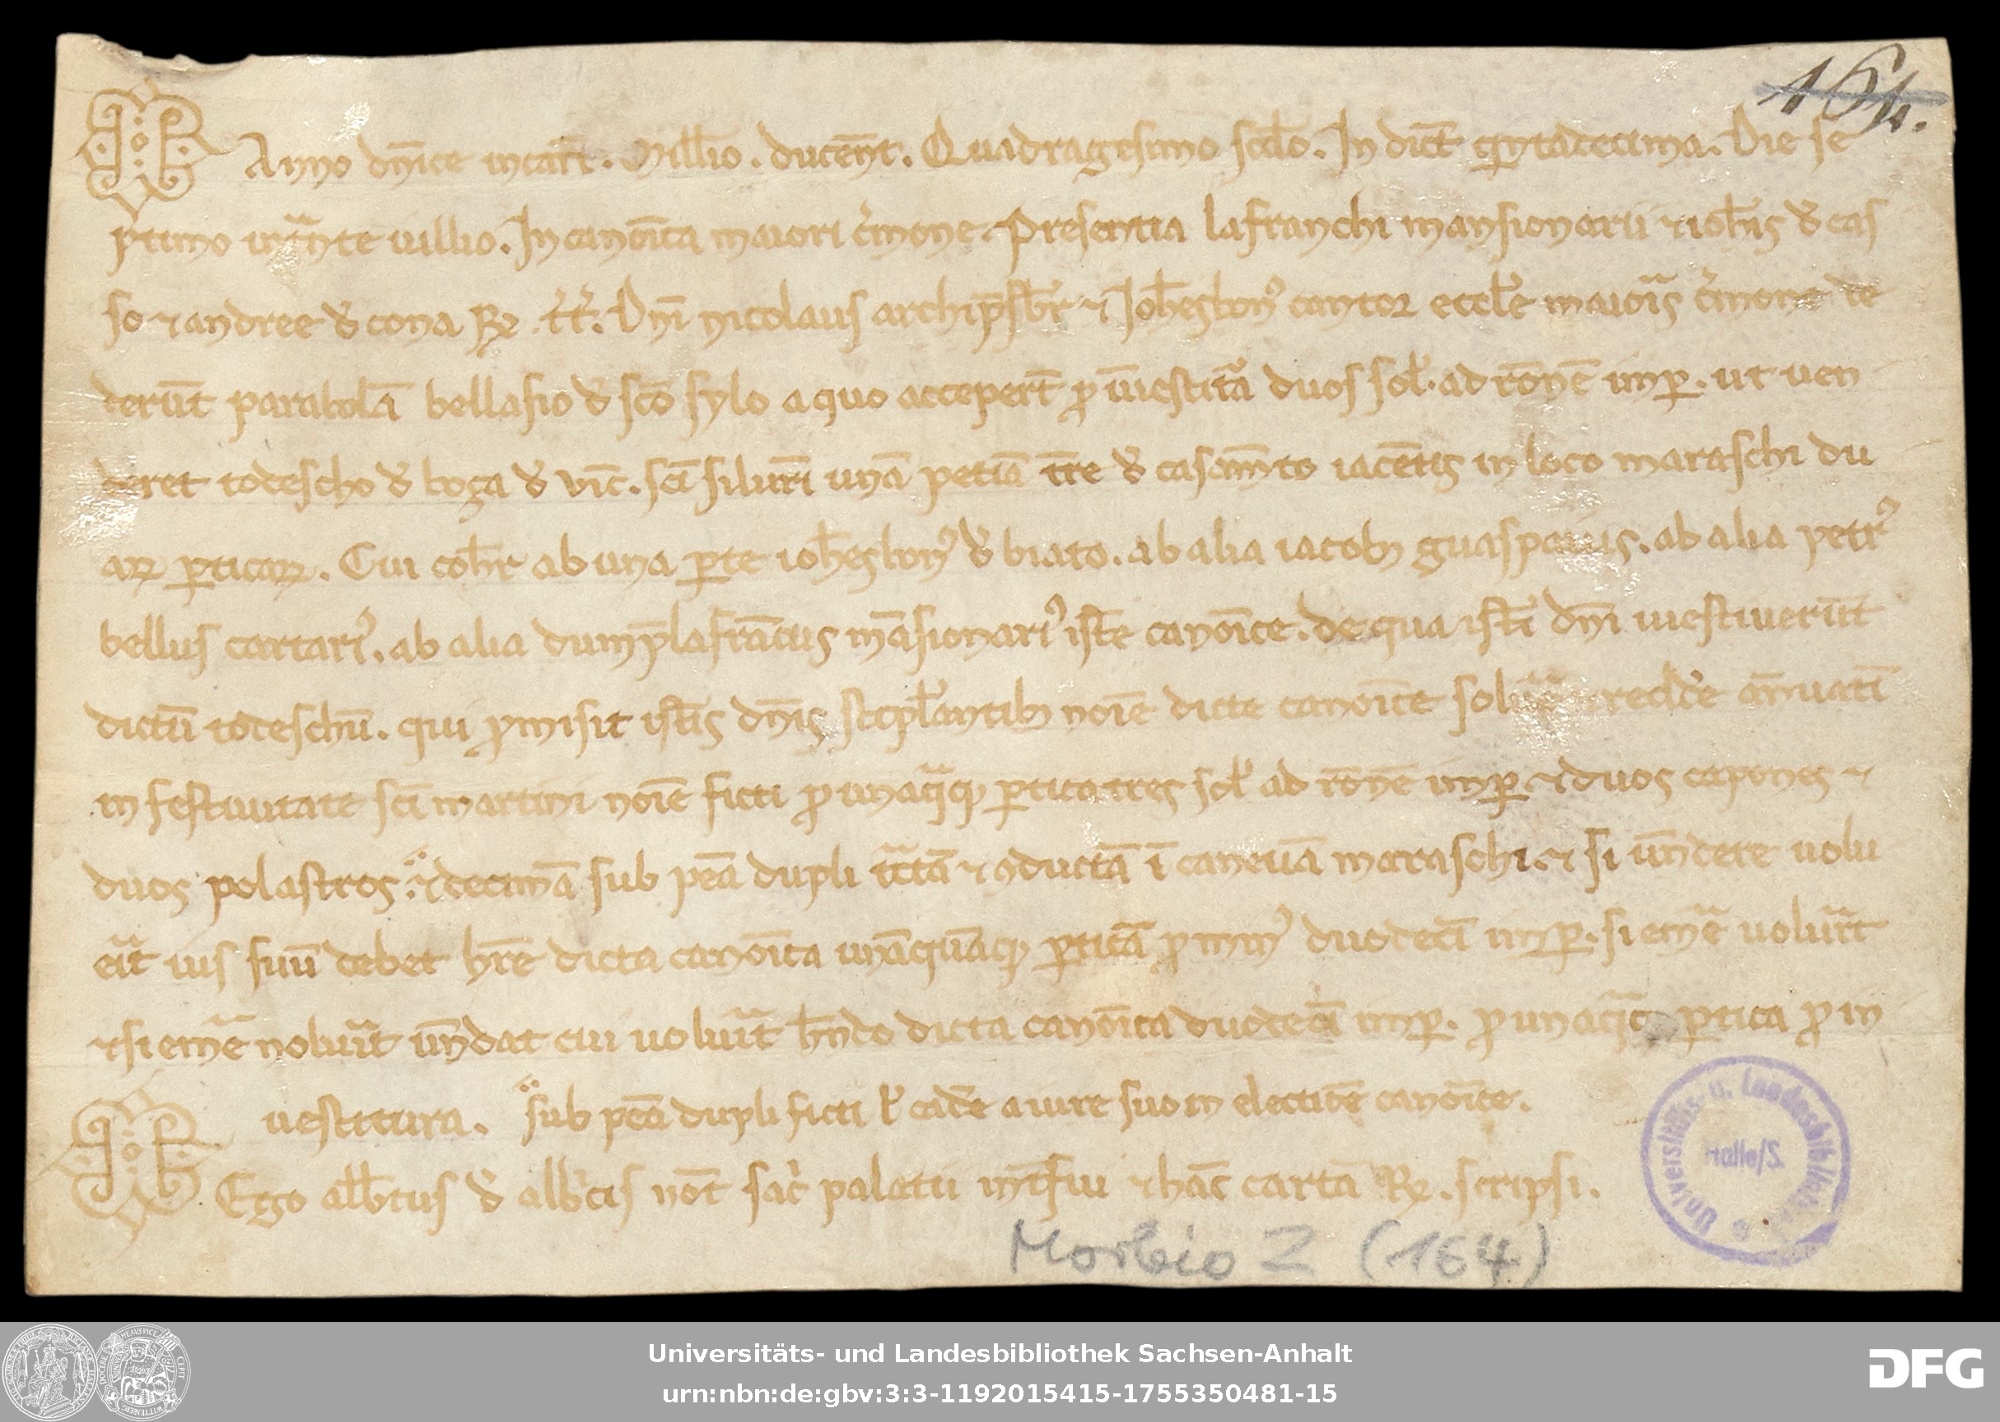 164.
Anno dn̄ice incarn̄. Mill̄io. ducen̄t. Quadragesimo scd̄o. Indict̄ q̄rtadecima. Die se
ptimo int̄nte iullio. In canōica maiori c̓mone. Presentia lafranchi mansionarii ⁊ ioh̄is d̄ cas
so ⁊ andree d̄ cona R̄ t̄t̄. Dn̄i nicolaus archip̄sb̄r ⁊ Ioh̄esbon᾽ cantor eccl̄e maiōis c̓mone de
derūt parabolā bellasio d̄ sc̄o sylo a quo accepert̄ ꝓ īuestit̄a duos sol̄. ad rōnē imꝑ. ut uen
deret todescho d̄ boga d̄ vic̄. sc̄i siluri᷒ unā petiā tr̄e d̄ casam̄to iacētis in loco maraschi du
aꝝ ꝑticaꝝ. Cui coh̄r ab una ꝑte ioh̄esbon᾽ d̄ biato. ab alia iacob᷒ guasparius. ab alia petr᾽
bellus cartari᾽. ab alia dump̄lafrācus māsionari᾽ ist̄e canōice. de qua ist̄i dn̄i iuestiuerūt
dictū todeschū. qui ꝓmisit ist̄is dn̄is stipl̄antib᷒ noīe dicte canōice redde᷒ an̄uatī
in festiuitate sc̄i martini noīe ficti ꝓ unaq̄q᷒ ꝑtica tres sol̄ ad rōnē imꝑ ⁊ duos capones ⁊
duos polastros. ⁊ decimā sub pēa dupli t̄ctā ⁊ ꝯductā ī caneuā maraschi. ⁊ si ūndere uolu
eīt ius suū debet hr̄e dicta canōica unāquāq᷒ ꝑticā ꝓ min᾽ duodecī imꝑ. si em̄e uoluīt
⁊ si em̄e noluīt ūndat cui uoluīt h̄ndo dicta canōica duodecī imꝑ. ꝓ unaq̄q᷒ ꝑtica ꝓ in
uestitura. sub pēa dupli ficti l̄ cade᷒ a iure suo in electiōe canōice.
Ego alb̄tus d̄ alb̄cis not̄ sac̓ palatii int̄fui ⁊ hāc cartā R̄. scripsi.
Morbio Z (164)
Universitäts- u. Landesbibliothek
Halle/S.
Universitäts- und Landesbibliothek Sachsen-Anhalt
urn:nbn:de:gbv:3:3-1192015415-1755350481-15
DFG